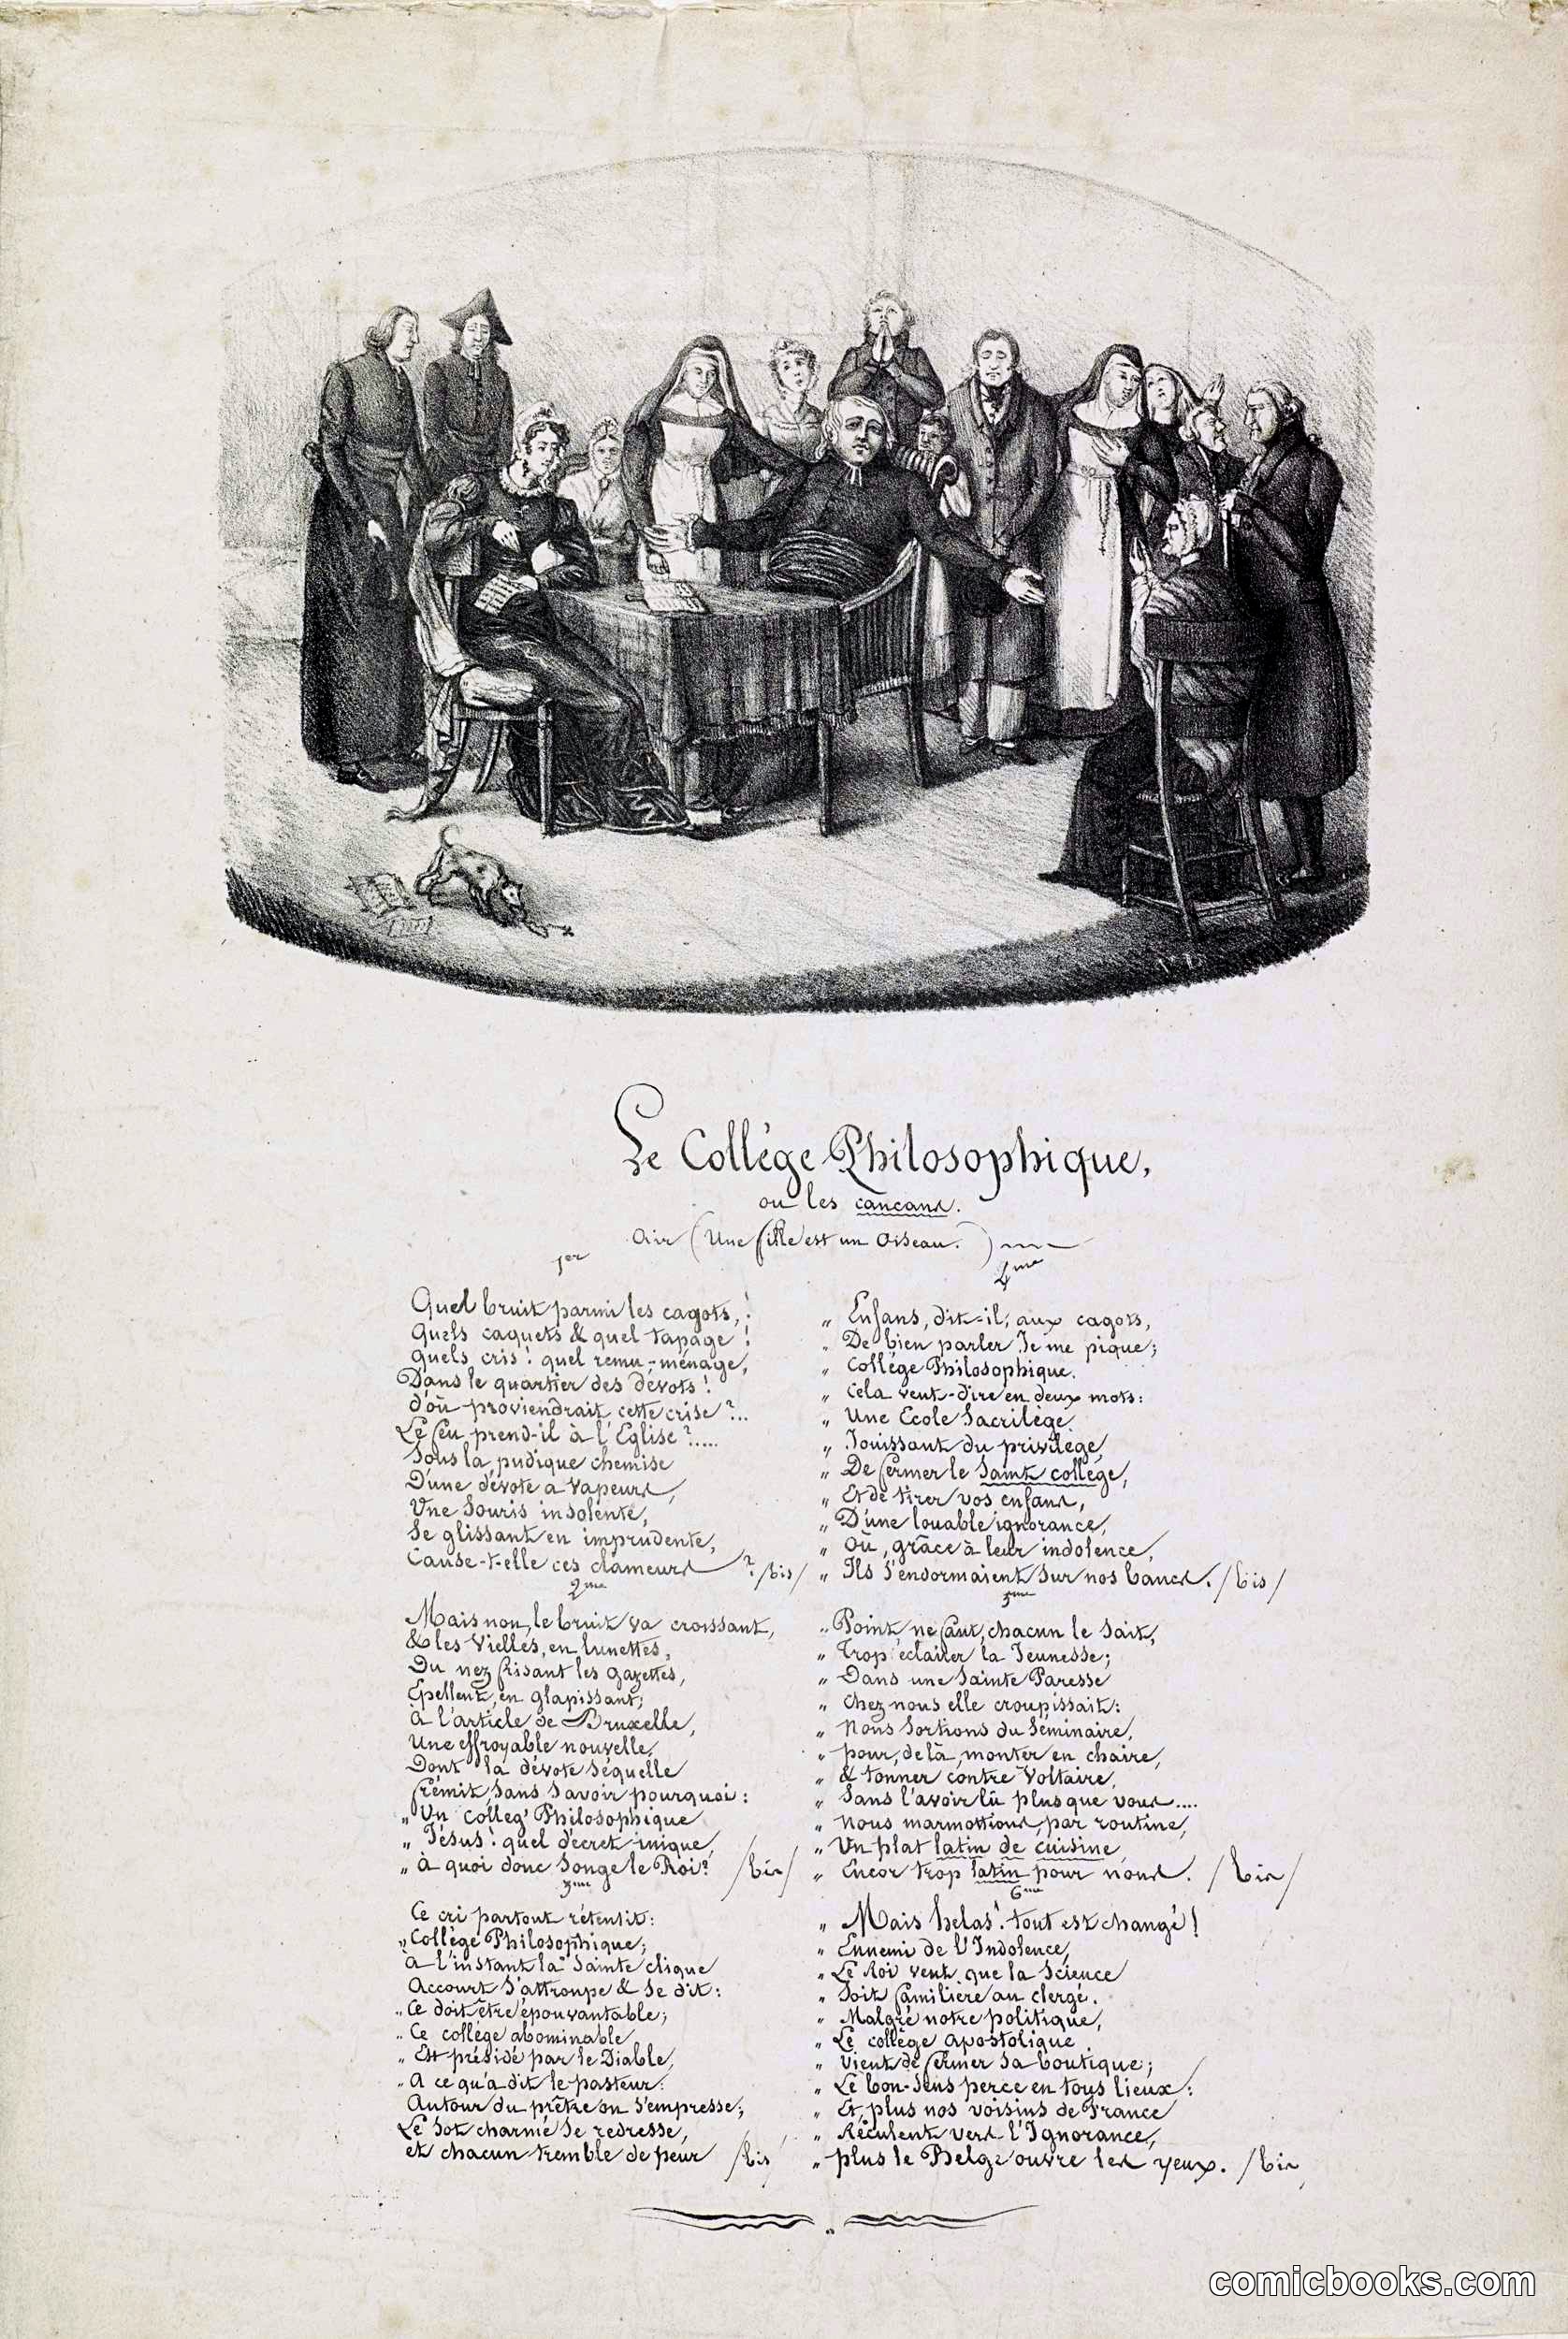 Le Collége Philosophique,
ou les cancans.
Air (Une fille est un Oiseau.)
1er
Quel bruit parmi les cagots,!
Quels caquets & quel tapage!
Quels cris! quel remu-ménage,
Dans le quartier des dévots!
d'où proviendrait cette crise?...
Le feu prend-il à l'Eglise?.....
Sous la pudique chemise
D'une dévote a vapeurs,
Une Souris insolente,
Se glissant en imprudente,
Cause-t-elle ces clameurs ? /bis/
2me
Mais non, le bruit va croissant,
& les Vielles, en lunettes,
Du nez frisant les gazettes,
Epellent, en glapissant;
à l'article de Bruxelle,
Une effroyable nouvelle,
Dont la dévote séquelle
frémit, sans savoir pourquoi:
„ Un colleg' Philosophique
„ Jésus! quel décret inique,
„ à quoi donc Songe le Roi? /bis/
3me
Ce cri partout rétentit:
„ Collège Philosophique;
à l'instant la Sainte clique
Accourt S'attroupe & Se dit:
„ Ce doit être épouvantable;
„ Ce collége abominable
„ Est présidé par le Diable,
„ A ce qu'a dit le pasteur:
Autour du prêtre on S'empresse;
Le Sot charmé Se redresse,
et chacun tremble de peur /bis/
4me
„ Enfans, dit-il, aux cagots,
„ De bien parler Je me pique;
„ Collége Philosophique.
„ Cela veut-dire en deux mots:
„ Une Ecole Sacrilège
„ Jouissant du privilège,
„ De fermer le Saint collège,
„ Et de tirer vos enfans,
„ D'une louable ignorance,
„ Où, grâce à leur indolence,
„ Ils S'endormaient Sur nos bancs. /bis/
5me
„ Point ne faut, chacun le Sait,
„ Trop éclairer la Jeunesse;
„ Dans une Sainte Paresse
„ Chez nous elle croupissait:
„ Nous Sortions du Séminaire,
„ pour, de là, monter en chaire,
„ & tonner contre Voltaire,
„ Sans l'avoir lû plus que vous....
„ Nous marmottions, par routine,
„ Un plat latin de cuisine,
„ Encor trop latin pour nous. /bis/
6me
„ Mais helas! tout est changé!
„ Ennemi de l'Indolence,
„ Le Roi veut que la Science
„ Soit familière au clergé.
„ Malgré notre politique,
„ Le collège apostolique
„ Vient de fermer Sa boutique;
„ Le bon-Sens perce en tous lieux:
„ Et, plus nos voisins de France
„ Réculent vers l'Ignorance,
„ plus le Belge ouvre les yeux. /bis
comicbooks.com